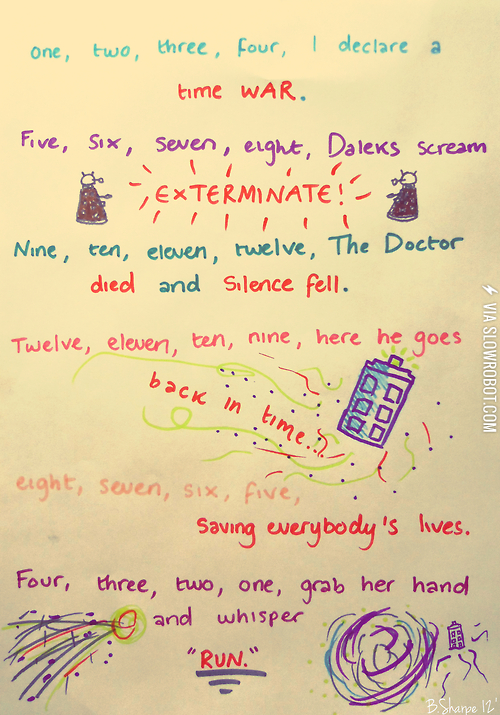 one, two, three, four, I declare a
time WAR.
Five, six, seven, eight, Daleks scream
EXTERMINATE!
Nine, ten, eleven, twelve, The Doctor
died and Silence fell.
Twelve, eleven, ten, nine, here he goes
back in time...
eight, seven, six, five,
saving everybody's lives.
Four, three, two, one, grab her hand
and whisper
"RUN."
B.Sharpe 12'
VIA SLOWROBOT.COM